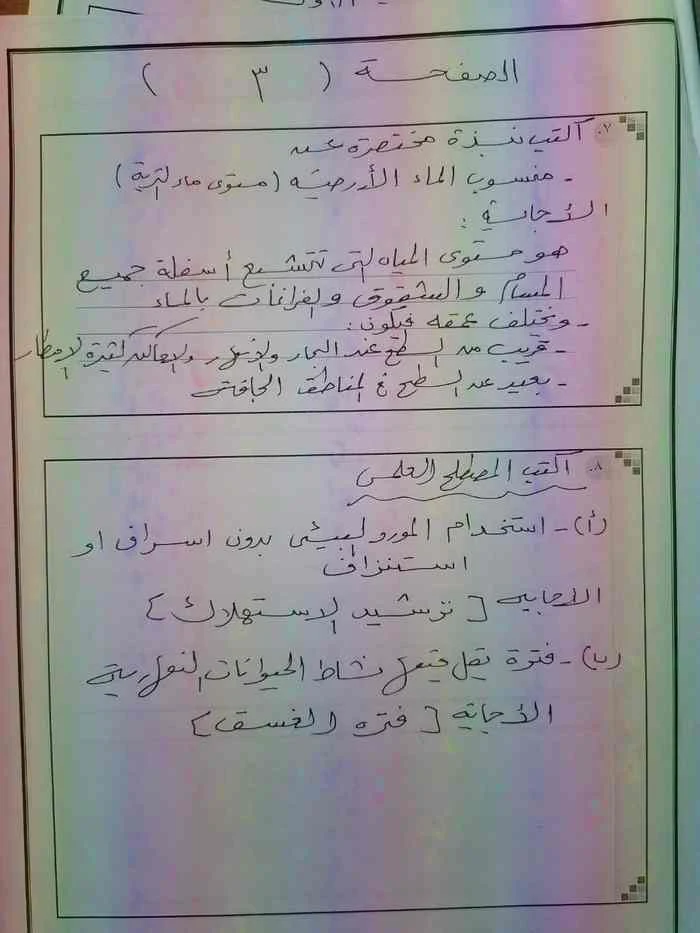 الصفحة ( ٣ )
٠٧ اكتب نبذة مختصرة عن
- منسوب الماء الأرضية (مستوى ماء التربة)
الأجابة :
هو مستوى المياه التى تتشبع أسفلة جميع
المسام والشقوق والفراغات بالماء
- ويختلف عمقه فيكون :
- قريب من السطح عند البحار والأنهار والاماكن كثيرة الامطار
- بعيد عن السطح فى المناطق الجافة
٠٨ اكتب المصطلح العلمى
(أ) - استخدام المورد البيئى بدون اسراف او
استنزاف
الاجابة [ ترشيد الاستهلاك ]
(ب) - فترة يقل فيها نشاط الحيوانات النهارية
الأجابة [ فترة الغسق ]